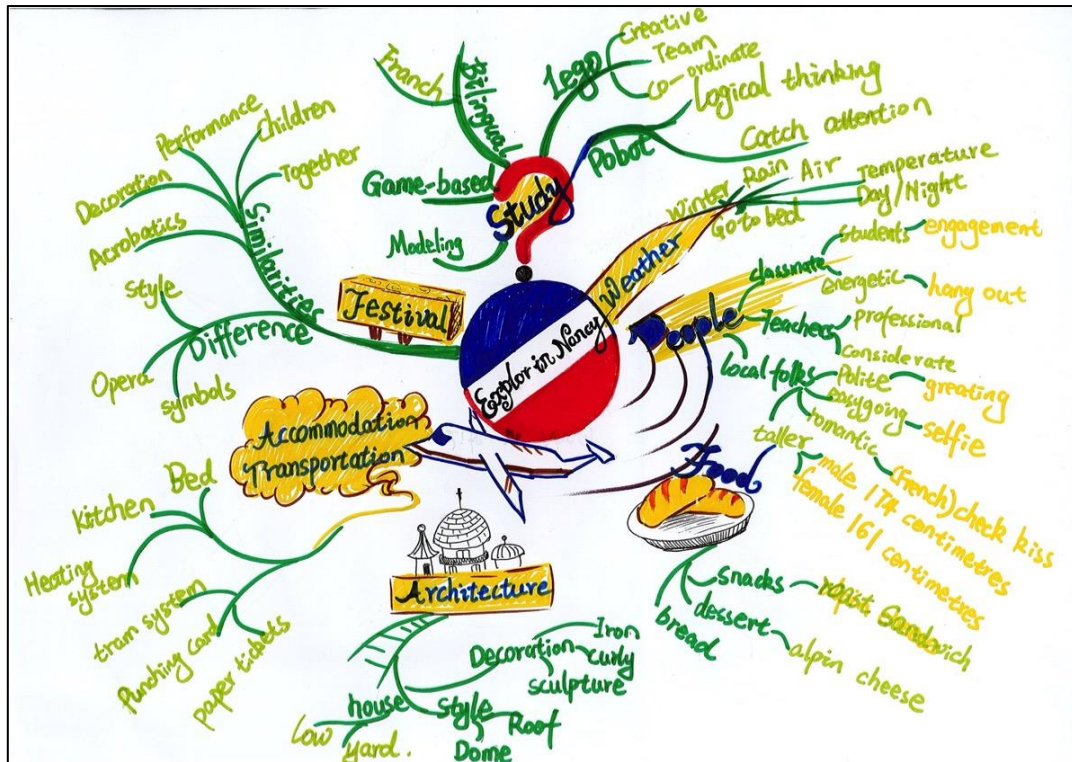 Explor in Nancy
Study
Lego
Creative
Team
Co-ordinate
Pobot
Logical thinking
Catch attention
Bilingual
Franch
Game-based
Modeling
Weather
Winter Rain Air
Go to bed
Temperature
Day/Night
People
classmate
Students
engagement
energetic
hang out
Teachers
professional
Considerate
local folks
Polite
greating
easygoing
selfie
romantic
(French) check kiss
taller
male 174 centimetres
female 161 centimetres
Food
snacks
Sandwich
dessert
alpin cheese
bread
Architecture
Decoration
Iron
curly
sculpture
Style
Roof
Dome
house
Low
yard.
Accommodation
Transportation
Bed
Kitchen
Heating
system
tram system
Punching card
paper tickets
Festival
Similarities
Performance
Children
Together
Decoration
Acrobatics
Difference
Style
Opera
symbols